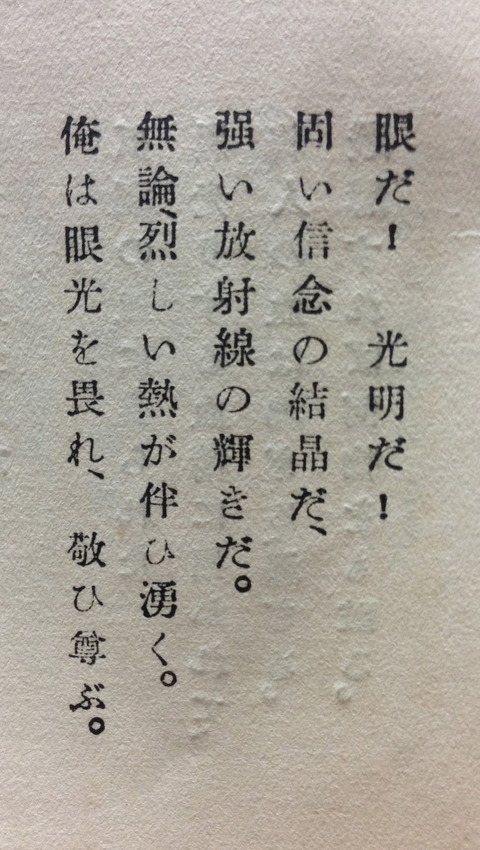 眼だ！　光明だ！
固い信念の結晶だ、
强い放射線の輝きだ。
無論、烈しい熱が伴ひ湧く。
俺は眼光を畏れ、敬ひ尊ぶ。